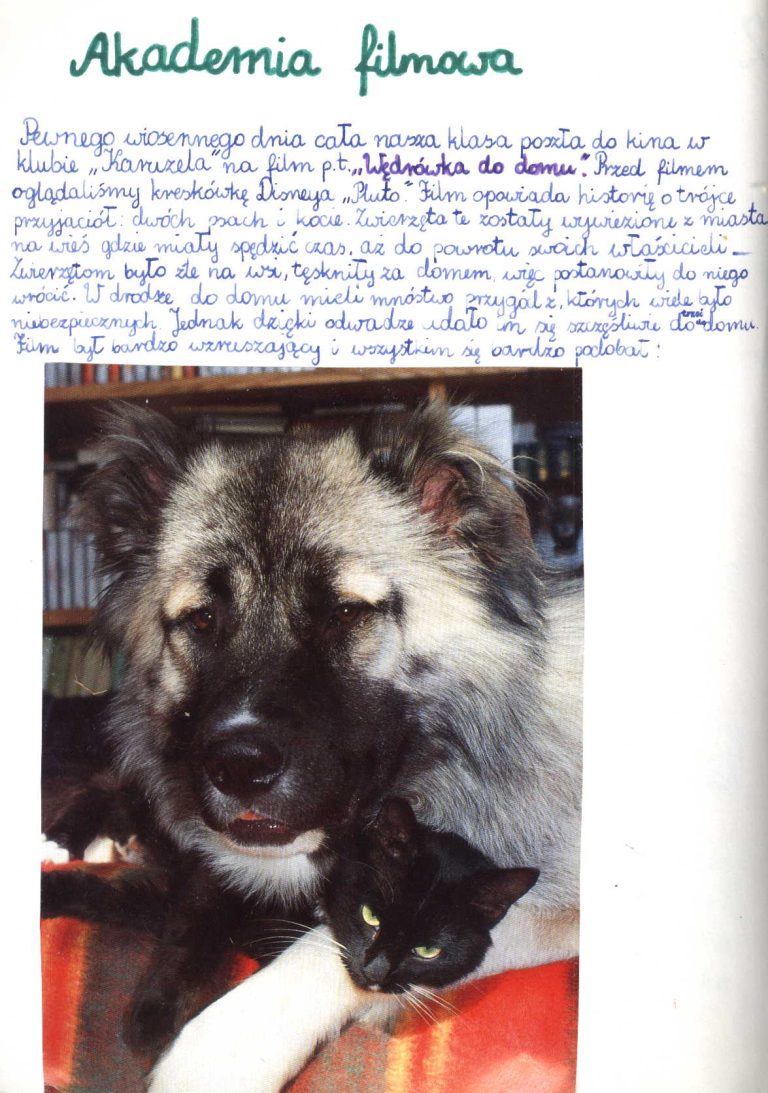 Akademia filmowa
Pewnego wiosennego dnia cała nasza klasa poszła do kina w
klubie „Karuzela" na film p.t. „Wędrówka do domu". Przed filmem
oglądaliśmy kreskówkę Disneya „Pluto". Film opowiada historię o trójce
przyjaciół: dwóch psach i kocie. Zwierzęta te zostały wywiezione z miasta
na wieś gdzie miały spędzić czas, aż do powrotu swoich właścicieli _
Zwierzętom było źle na wsi, tęskniły za domem, więc postanowiły do niego
wrócić. W drodze do domu mieli mnóstwo przygód z, których wiele było
niebezpiecznych. Jednak dzięki odwadze udało im się szczęśliwie do domu.
Film był bardzo wzruszający i wszystkim się bardzo podobał!